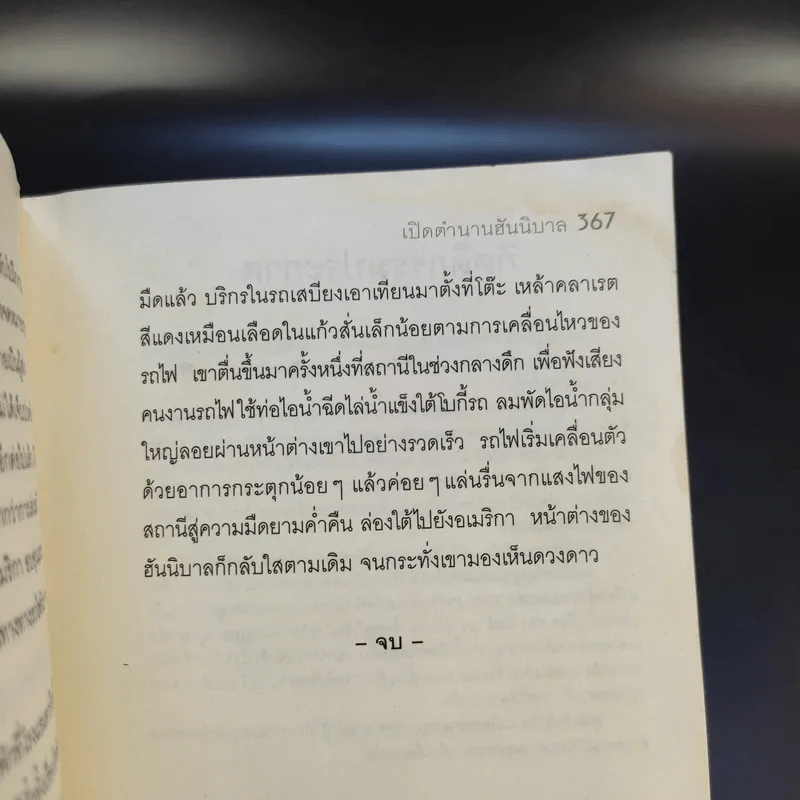 เปิดตำนานฮันนิบาล 367
มืดแล้ว บริกรในรถเสบียงเอาเทียนมาตั้งที่โต๊ะ เหล้าคลาเรต
สีแดงเหมือนเลือดในแก้วสั่นเล็กน้อยตามการเคลื่อนไหวของ
รถไฟ เขาตื่นขึ้นมาครั้งหนึ่งที่สถานีในช่วงกลางดึก เพื่อฟังเสียง
คนงานรถไฟใช้ท่อไอน้ำฉีดไล่น้ำแข็งใต้โบกี้รถ ลมพัดไอน้ำกลุ่ม
ใหญ่ลอยผ่านหน้าต่างเขาไปอย่างรวดเร็ว รถไฟเริ่มเคลื่อนตัว
ด้วยอาการกระตุกน้อยๆ แล้วค่อยๆ แล่นรื่นจากแสงไฟของ
สถานีสู่ความมืดยามค่ำคืน ล่องใต้ไปยังอเมริกา หน้าต่างของ
ฮันนิบาลก็กลับใสตามเดิม จนกระทั่งเขามองเห็นดวงดาว
– จบ –